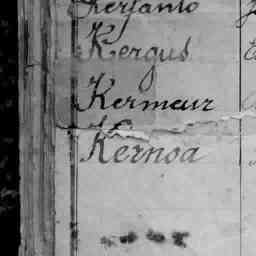 Kerjanto
Kergus
Kermeur
Kernoa